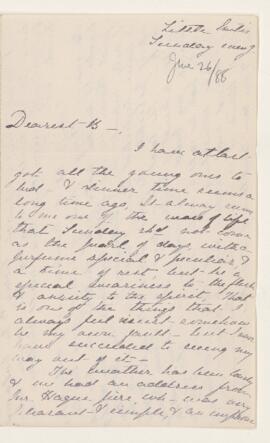 Sunday eveng
June 26/88
Dearest B -.
I have at last
got all the young ones to
bed - & dinner time seems a
long time ago. It always seems
to me one of the woes of life
that Sunday shd. not come
as the pearl of days with a
perfume special & peculiar &
a time of rest, but be a
special weariness to the flesh
& anxiety to the spirit. That
is one of the things that I
always feel must somehow
be my own fault - but I
have succeeded to seeing my
way out of it -
The weather has been lovely
& we had an address from
Mr. Hague here, wh. was very
pleasant - & simple, & an